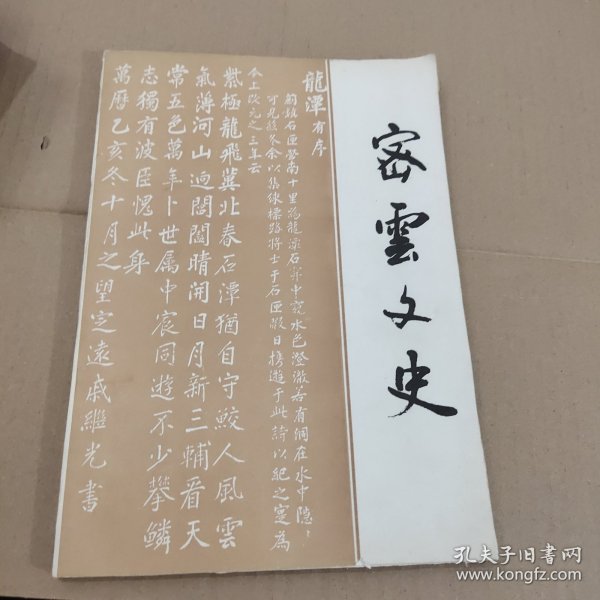 密雲文史
龍潭有序
薊鎮石匣營南十里為龍潭石穿中窾水色澄澈若有個在水中隱〻
可見 余以集線標路將士于石匣暇日携遊于此詩以紀之寔為
今上改元之三年云
紫極龍飛冀北春石潭猶自守鮫人風雲
氣薄河山迥閶闔晴開日月新三輔看天
常五色萬年卜世属中宸同遊不少攀鱗
志獨有波臣愧此身
萬曆乙亥冬十月之望定遠戚繼光書
孔夫子旧书网
www.kongfz.com